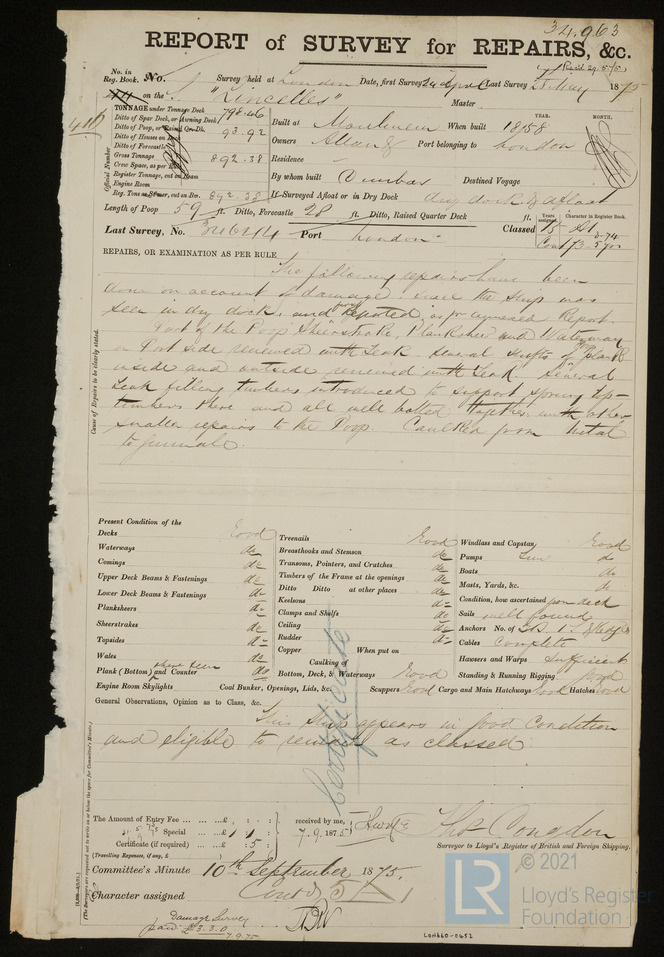 34,963
REPORT of SURVEY for REPAIRS, &c.
No. in Reg. Book. No. Survey held at London Date, first Survey 24 April Last Survey 28 May 1875
on the "Lincelles" Master
TONNAGE under Tonnage Deck 798.46
Ditto of Spar Deck, or Awning Deck
Ditto of Poop, or Raised Qr. Dk. 93.92
Ditto of Houses on
Ditto of Forecastle
Gross Tonnage 892.38
Crew Space, as per
Register Tonnage, cut on Beam
Engine Room
Reg. Tons as Steamer, cut on Bm. 892.38
Official Number
Built at Moulmein When built 1858
YEAR. MONTH.
Owners Allan & Port belonging to London
Residence
By whom built Dunbar Destined Voyage
If Surveyed Afloat or in Dry Dock dry dock & afloat
Length of Poop 59 ft. Ditto, Forecastle 28 ft. Ditto, Raised Quarter Deck ft.
Last Survey, No. Port London
Classed
Years assigned Character in Register Book.
15 A1
REPAIRS, OR EXAMINATION AS PER RULE
Cause of Repairs to be clearly stated.
The following repairs have been
done on account of damage, since the Ship was
seen in dry dock, and reported, as per annexed Report.
Part of the Poop Sheerstrake, Planksheer and Waterway
on Port side renewed with Teak. Several shifts of plank
inside and outside renewed with Teak. Several
Teak filling timbers introduced to support sprung top-
timbers there and all well bolted together with other
smaller repairs to the Poop. Caulked from metal
to gunwale.
Present Condition of the
Decks Good
Waterways do
Comings do
Upper Deck Beams & Fastenings do
Lower Deck Beams & Fastenings do
Planksheers do
Sheerstrakes do
Topsides do
Wales do
Plank (Bottom) and Counter where seen do
Engine Room Skylights Coal Bunker, Openings, Lids, &c.
Treenails Good
Breasthooks and Stemson do
Transoms, Pointers, and Crutches do
Timbers of the Frame at the openings do
Ditto Ditto at other places do
Keelsons do
Clamps and Shelfs do
Ceiling do
Rudder do
Copper When put on
Caulking of
Bottom, Deck, & Waterways Good
Scuppers Good Cargo and Main Hatchways Good Hatches Good
Windlass and Capstan Good
Pumps do
Boats do
Masts, Yards, &c. do
Condition, how ascertained from deck
Sails well found
Anchors No. of
Cables Complete
Hawsers and Warps Sufficient
Standing & Running Rigging Good
General Observations, Opinion as to Class, &c.
This Ship appears in good Condition
and eligible to remain as classed
Certificate
The Amount of Entry Fee ... ... £ : :
Special ... ... £ 1 : 1
Certificate (if required) ... £ : 5
(Travelling Expenses, if any, £
received by me,
7.9.1875
Thos Congdon
Surveyor to Lloyd's Register of British and Foreign Shipping.
Committee's Minute 10th September 1875.
Character assigned
Damage Survey
paid £3.3.0
7.9.75
LON660-0652
© 2021
LR
Lloyd's Register
Foundation